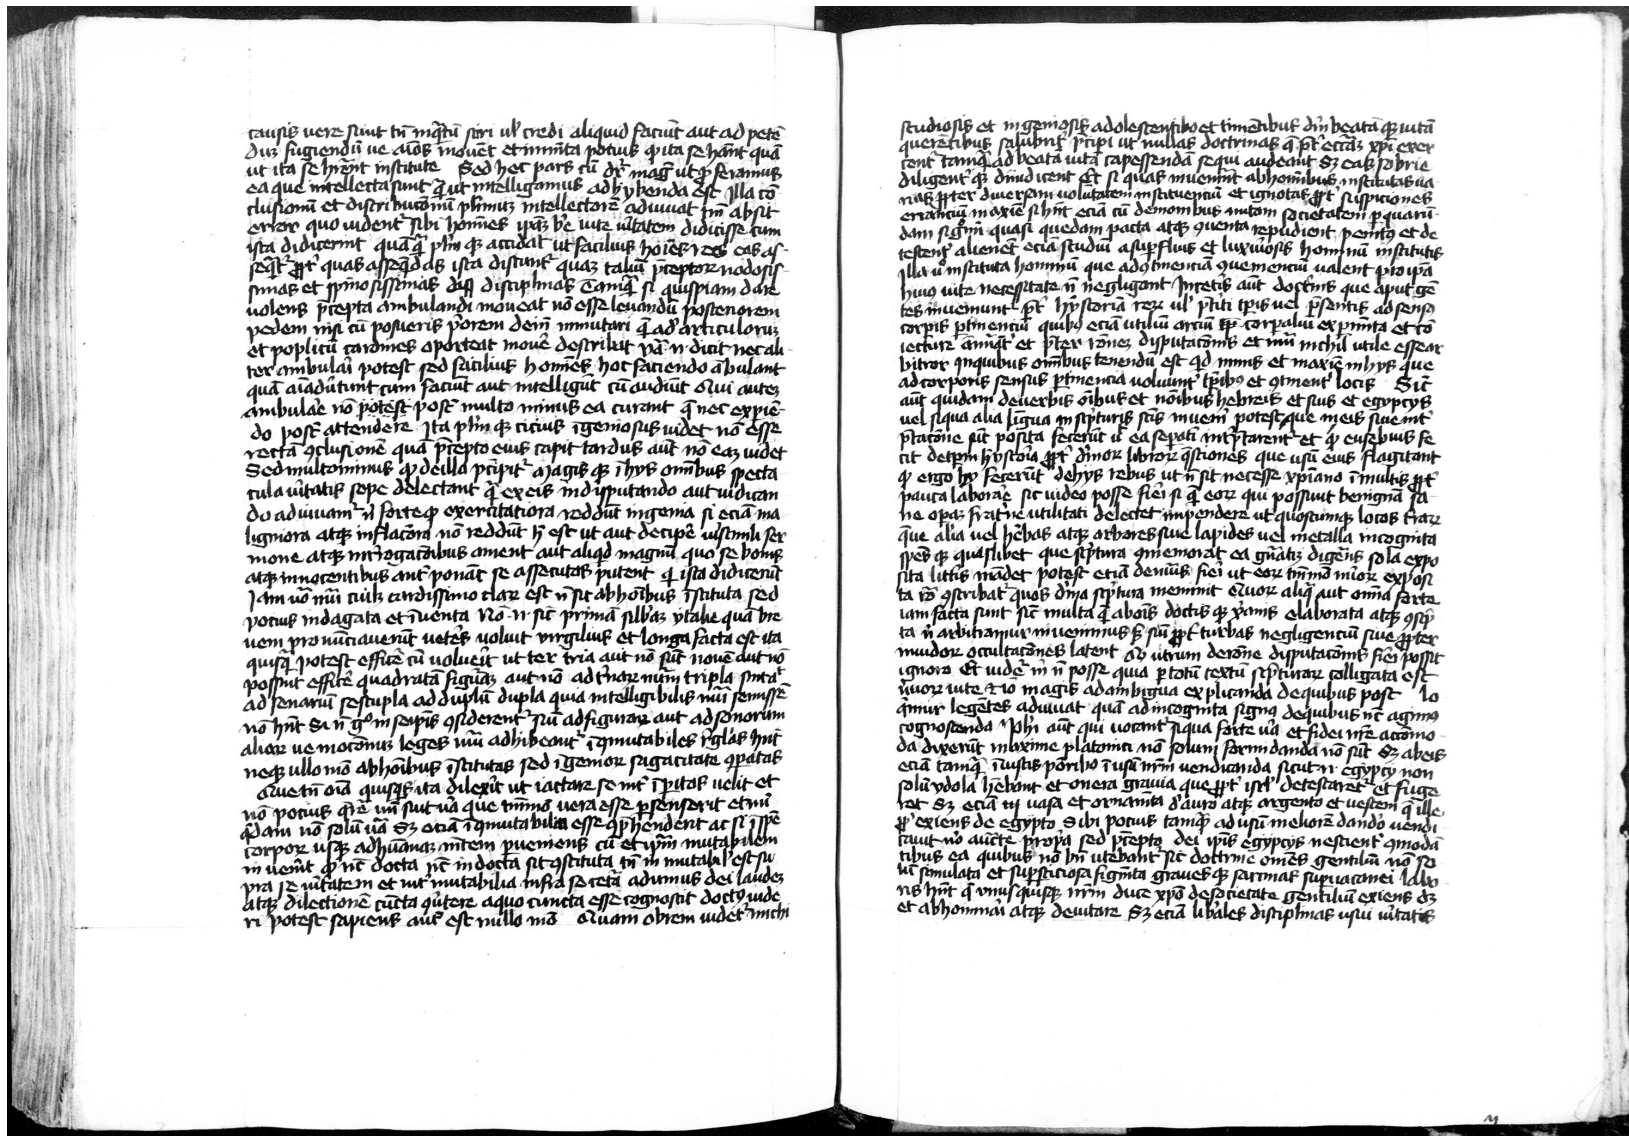 causis uere sunt tn̄ inq̄tū sciri ul' credi aliquid faciūt aut ad petē
duȝ fugiendū ue aīos mouēt et inuīta potius q̄ ita se hān̄t quā
ut ita se hr̄ent institute Sed hec pars cū dr̄ maḡ ut p̄feramus
ea que intellecta sunt q̄ ut intelligamus adhybenda est Illa cō
clusionū et distributionū plīmuȝ intellectorē adiuuat tm̄ absit
error quo uident' sibi homīes ip̄aȝ be' uite uītatem didicisse cum
ista didicerint quāq̄ plīm qȝ accidat ut facilius hoīes res eas as
seq̄nt' ꝓpt' quas asseq̄ndas ista discunt' quaȝ taliū p̄ceptorꝝ nodosis
simas et spinosissimas disciplinas Tamq̄ si quispiam dare
uolens p̄cepta ambulandi moueat nō esse leuandū posteriorem
pedem nisi cū posueris p̄orem deīn minutari q̄ ad' articulorum
et poplitū cardines oporteat mouē describat ūa n̄ dicit nec ali
ter ambulari potest sed facilius homīes hoc faciendo ābulant
quā aīad'ūtunt cum faciūt aut intelligūt cū audiūt Qui autem
ambulare nō potest post multo minus ea curant q̄ nec experiē
do post' attendere Ita plīm qȝ citius īgeniosus uidet nō esse
rectā ꝯclusionē quā p̄cepto eius capit tardus aūt nō eaȝ uidet
Sed multominus qd' de illa p̄cipit' Magis qȝ ī hys omībus specta
cula uītatis sepe delectant q̄ ex eis in disputando aut iudican
do adiuuamr' n̄ forte qd' exercitatiora reddūt ingenia si eciā ma
ligniora atqȝ inflacōra nō reddūt h' est ut aut decipe' uīsimili ser
mone atqȝ int'rogacōibus ament aut aliqd' magnū quo se bonis
atqȝ innocentibus ant'ponāt se assecutos putent q̄ ista didicerūt
Iam uō nūi cuilȝ tardissimo claꝝ est n̄ sit ab hoībus īstituta sed
potius indagata et īuenta Nō n̄ sic' primā sillb'aȝ ytalie quā bre
uem pronūciauerūt uetēs uoluit uirgilius et longa facta est ita
quisq̄ potest efficē cū uolueīt ut ter tria aut nō sūt nouē aut nō
possint efficē quadratā figurāȝ aut nō ad t'narꝝ nūm tripla sint
ad senariū sescupla ad duplū dupla quia intelligibilis nūi semissē
nō hn̄t Si n̄ g° in seip̄is ꝯsiderent' siū ad figurarꝝ aut ad sonorum
aliorꝝ ue mocōmū leges nūi adhibeant' īꝯmutabiles r'glas hn̄t
neqȝ ullo mō ab hoībus īstitutas sed īgeniorꝝ sagacitate ꝯp̄atas
Que tn̄ oīa quisqȝs ita dilexīt ut iactare se int' īp̄itos uelit et
nō potius q̄rē un̄ siut uā que tm̄mō uera esse p̄senserit et un̄
q̄dam nō solū uā sȝ eciā īꝯmutabilia esse ꝯp̄hendent ac si īspē
corporꝝ usqȝ ad hūanaȝ mētem p̄ueniens cū et ip̄am mutabilem
inueīit qd' nc̄ docta nc̄ indocta sit ꝯstituta tn̄ in mutabil' est su
pra se uītatem et int' mutabilia infra se cetā ad unius dei laudeȝ
atqȝ dilectionē cūcta ꝯūtere a quo cuncta esse cognoscit doctꝰ uide
ri potest sapiens aut' est nullo mō Quam obrem uidet' michi
studiosis et ingeniosis adolescentibꝰ et timētibus dm̄ beatā qȝ uitā
querētibus salubrit' p̄cipi ut nullas doctrinas q̄ p̄t' eccāȝ xp̄i exer
cent' tamq̄ ad beatā uitā capessendā sequi audeant Sȝ eas sobrie
diligent' qȝ diiudicent Et si quas inueniīt ab homībus institutas ua
rias ꝓpter diuersam uolūtatem instituenciū et ignotas ꝓpt' suspiciones
erranciū maxie si hn̄t eciā cū demonibus initam societatem p̄ quarū
dam signorꝝ quasi quedam pacta atqȝ ꝯuenta repudient penitꝰ et de
testent' alienēt eciā studiū a sup̄fluis et luxuriosis hominū institutis
Illa uō instituta hominū que ad ꝯuiuenciā ꝯuenienciū ualent pro ipa
huiꝰ uite necessitate n̄ negligant In cetis aūt doctīis que aput gē
tes inueniunt' p̄t' hystoriā rerꝝ ul' p̄titi tp̄is uel p̄sentis ad sensꝰ
corpis p̄tinenciū quibꝰ eciā utiliū arciū sp̄ corpaliū exp̄inta et cō
iecture ānūāt' et p̄ter rōneȝ disputacōnis et nūi nichil utile esse ar
bitror In quibus omībus tenendū est qd' nimis et maxie in hys que
ad corporis sensus p̄tinencia uoluūt' tp̄ibꝰ et ꝯtinent' locis Sic'
aūt quidam de uerbis oībus et noībus hebreis et siris et egypcys
uel si qua alia lingua in sc̄pturis scīs inueniī potest que in eis siue int'
p̄tatōne sūt posita fecerūt ut ea sepatī int'p̄tarent' et qd' eusebius fe
cit de tp̄m hystoia ꝓpt' d'inorꝝ librorꝝ q̄stiones que usū eius flagitant
qd' ergo hy fecerūt de hys rebus ut n̄ sit necesse xp̄iano ī multis ꝓpt'
pauca laborare sic uideo posse fieri si q̄ eorꝝ qui possūt benignā sa
ne opaȝ frat'ne utilitati delectet inpendere ut quoscumqȝ locos t'rarꝝ
q̄ue alia uel hēbas atqȝ arbores siue lapides uel metalla incognita
sp̄es qȝ quaslibet que sc̄ptura ꝯmemorat ea gn̄atiȝ digeēns sola expo
sita litt'is mādet potest eciā de nūis fieri ut eorꝝ tm̄mō nūorꝝ exposi
ta rō ꝯscribat' quos dīna sc̄ptura meminit Quorꝝ aliq̄ aut omīa forte
iam facta sunt sic' multa q̄ a bonis doctis qȝ xp̄ianis elaborata atqȝ ꝯsc̄p
ta n̄ arbitramur inuenimus sȝ siū ꝓpt' turbas negligenciū siue ꝓpter
inuidorꝝ occultacōnes latent Qȝ utrum de rōne disputacōnis fieri possit
ignoro Et uidet' m' n̄ posse quia p̄ totū textū sc̄pturarꝝ colligata est
n̄uorꝝ uice et io magis ad ambigua explicanda de quibus post lo
q̄mur legētes adiuuat quā ad incognita signa de quibus nc̄ agimꝰ
cognoscenda Ph'i aūt qui uocant' si qua forte uā et fidei nr̄e accōmo
da dixerūt maxime platonici nō solum formidanda nō sūt Sȝ ab eis
eciā tamq̄ iniustis p̄orībꝰ ī usū nr̄m uendicanda sicut n̄ egypcy non
solū ydola hēbant et onera grauia que ꝓpt' isrl' detestaret' et fuge
ret Sȝ eciā uasa et ornamīta d' auro atqȝ argento et uestem q̄ ille
pp' exiens de egypto sibi potius tamq̄ ad usū meliorē dando uendi
cauit nō auctē propria sed p̄cepto dei ip̄is egypcys nescient' ꝯmodā
tibus ea quibus nō bn̄ utebant' sic doctrine omēs gentiliū nō so
lū simulata et sup̄sticiosa figmīta graues qȝ sarcinas sup̄uacanei labo
ris hn̄t q̄ unusquisqȝ nr̄m duce xp̄o de societate gentiliū exiens dȝ
et abhominari atqȝ deuitare Sȝ eciā lib'ales disciplinas usui uītatis